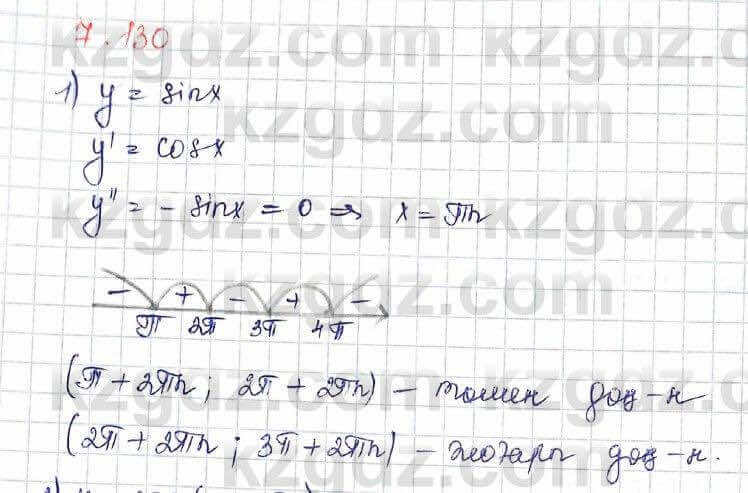 7.130
1) y = sinx
y' = cosx
y'' = - sinx = 0 ⇒ x = πn
- + - + -
π 2π 3π 4π
(π + 2πn ; 2π + 2πn) - төмен дөң-к
(2π + 2πn ; 3π + 2πn) - жоғары дөң-к.
kzgdz.com